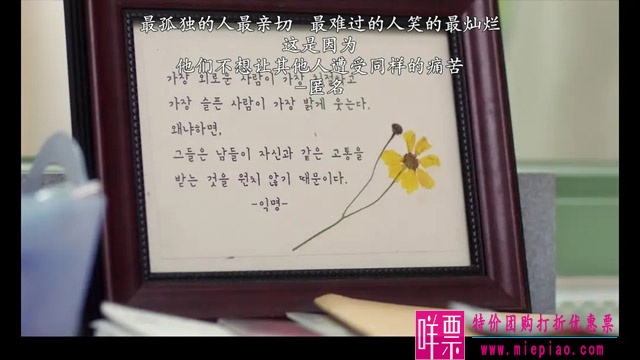 最孤独的人最亲切 最难过的人笑的最灿烂
这是因为
他们不想让其他人遭受同样的痛苦
-匿名
가장 외로운 사람이 가장 친절하고
가장 슬픈 사람이 가장 밝게 웃는다.
왜냐하면,
그들은 남들이 자신과 같은 고통을
받는 것을 원치 않기 때문이다.
-익명-
咩票 特价团购打折优惠票
www.miepiao.com